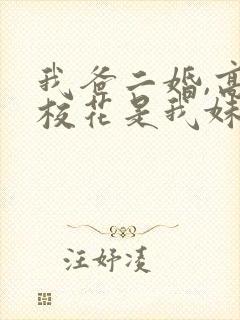 我爸二婚,高
校花是我妹
汪妤凌